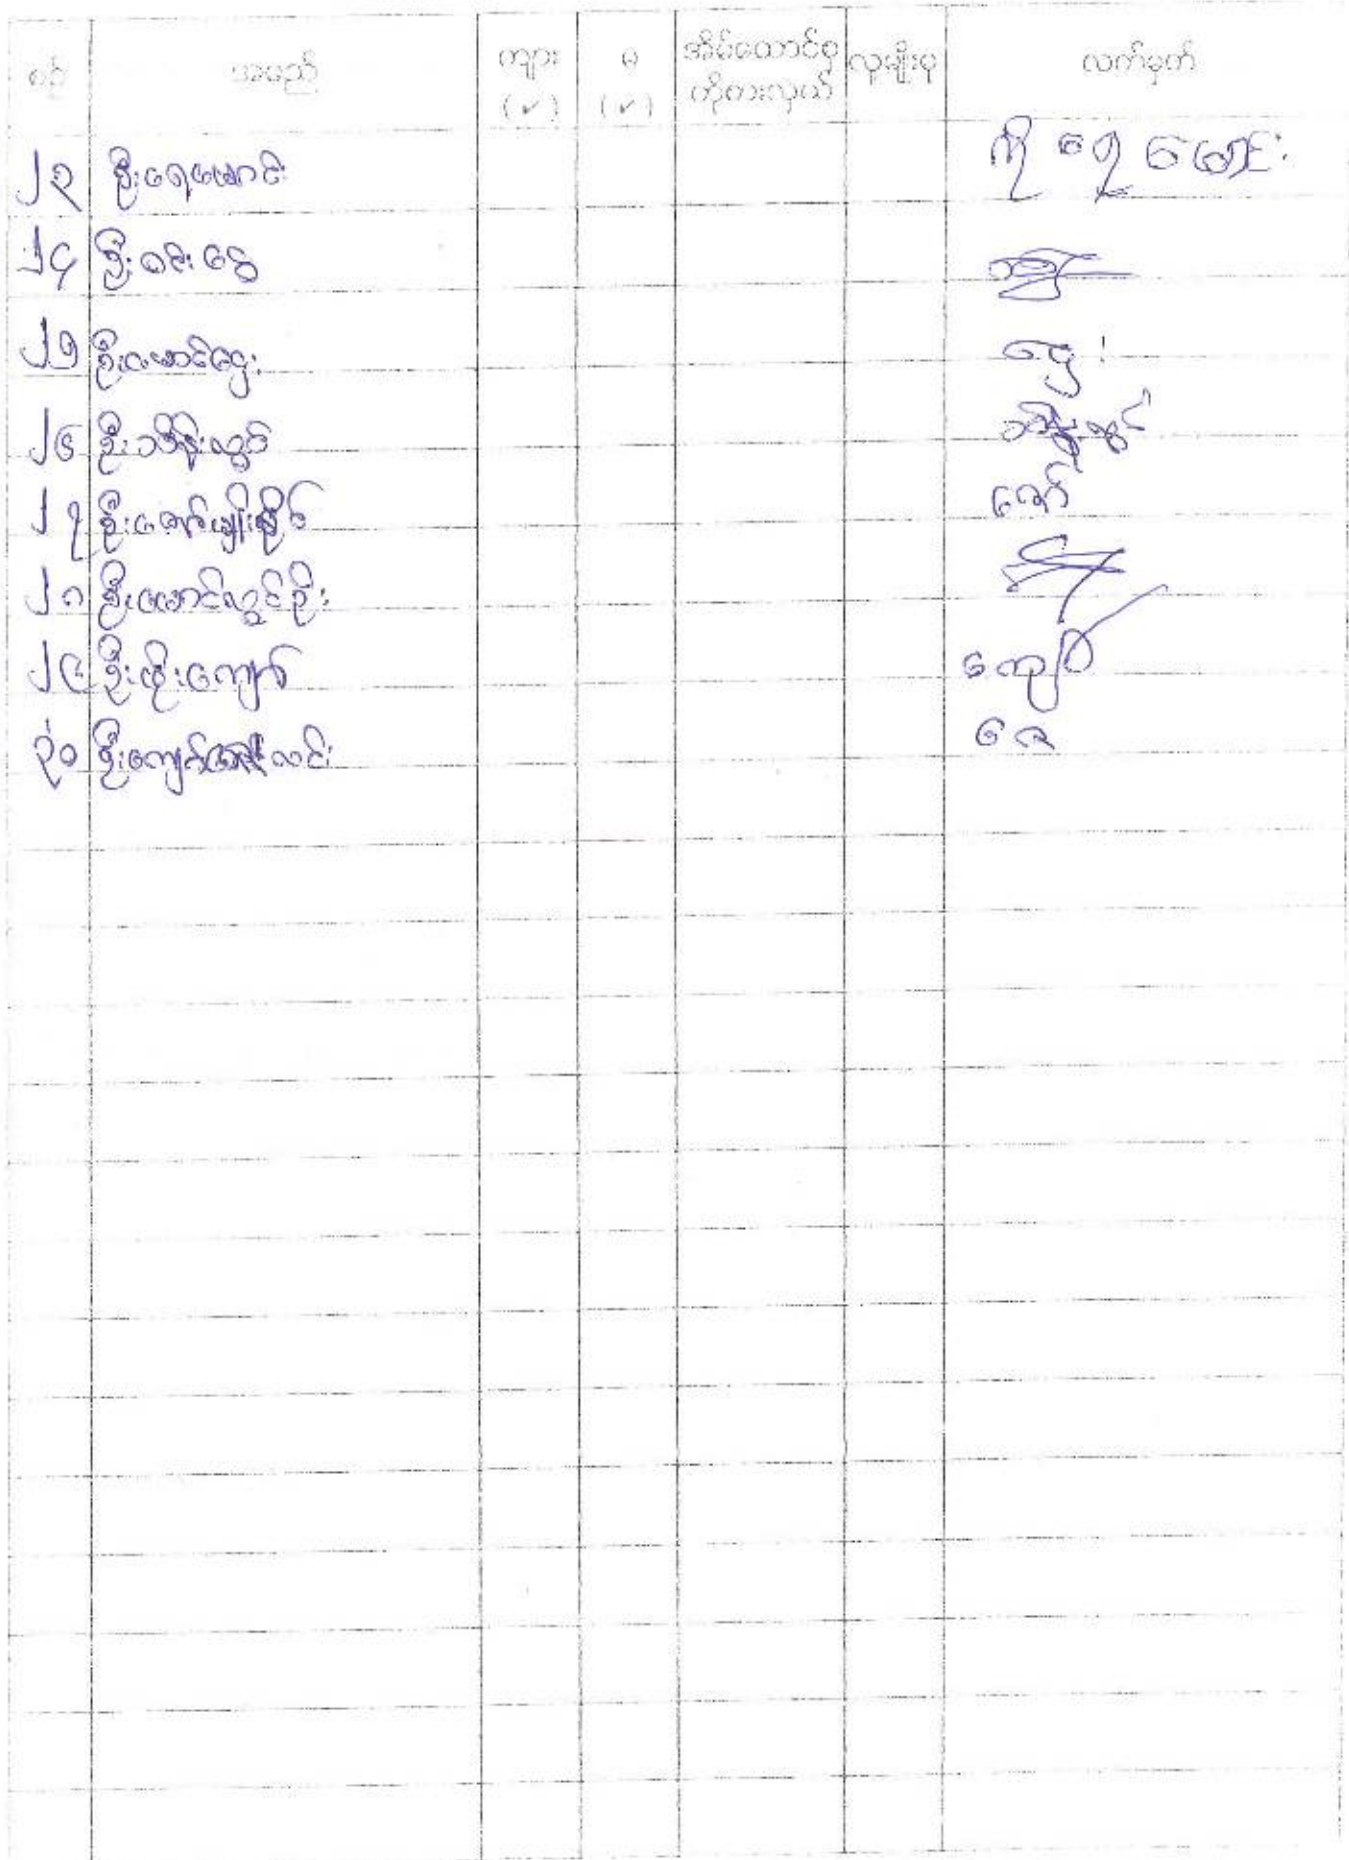 စဉ် အမည် ကျား (✓) မ (✓) အိမ်ထောင်စု ကိုစားလှယ် လူမျိုးစု လက်မှတ်
၂၃ ဦးရေမောင်း ကို ရွှေ မောင်း
၂၄ ဦးဝင်းဆွေ
၂၅ ဦးမောင်ဌေး ဌေး
၂၆ ဦးသိန်းလွင် သိန်းလွင်
၂၇ ဦးဇော်မျိုးနိုင် ဇော်
၂၈ ဦးအောင်လွင်ဦး
၂၉ ဦးထိုးကျော် ကျော်
၃၀ ဦးကျော် လင်း ဇေ